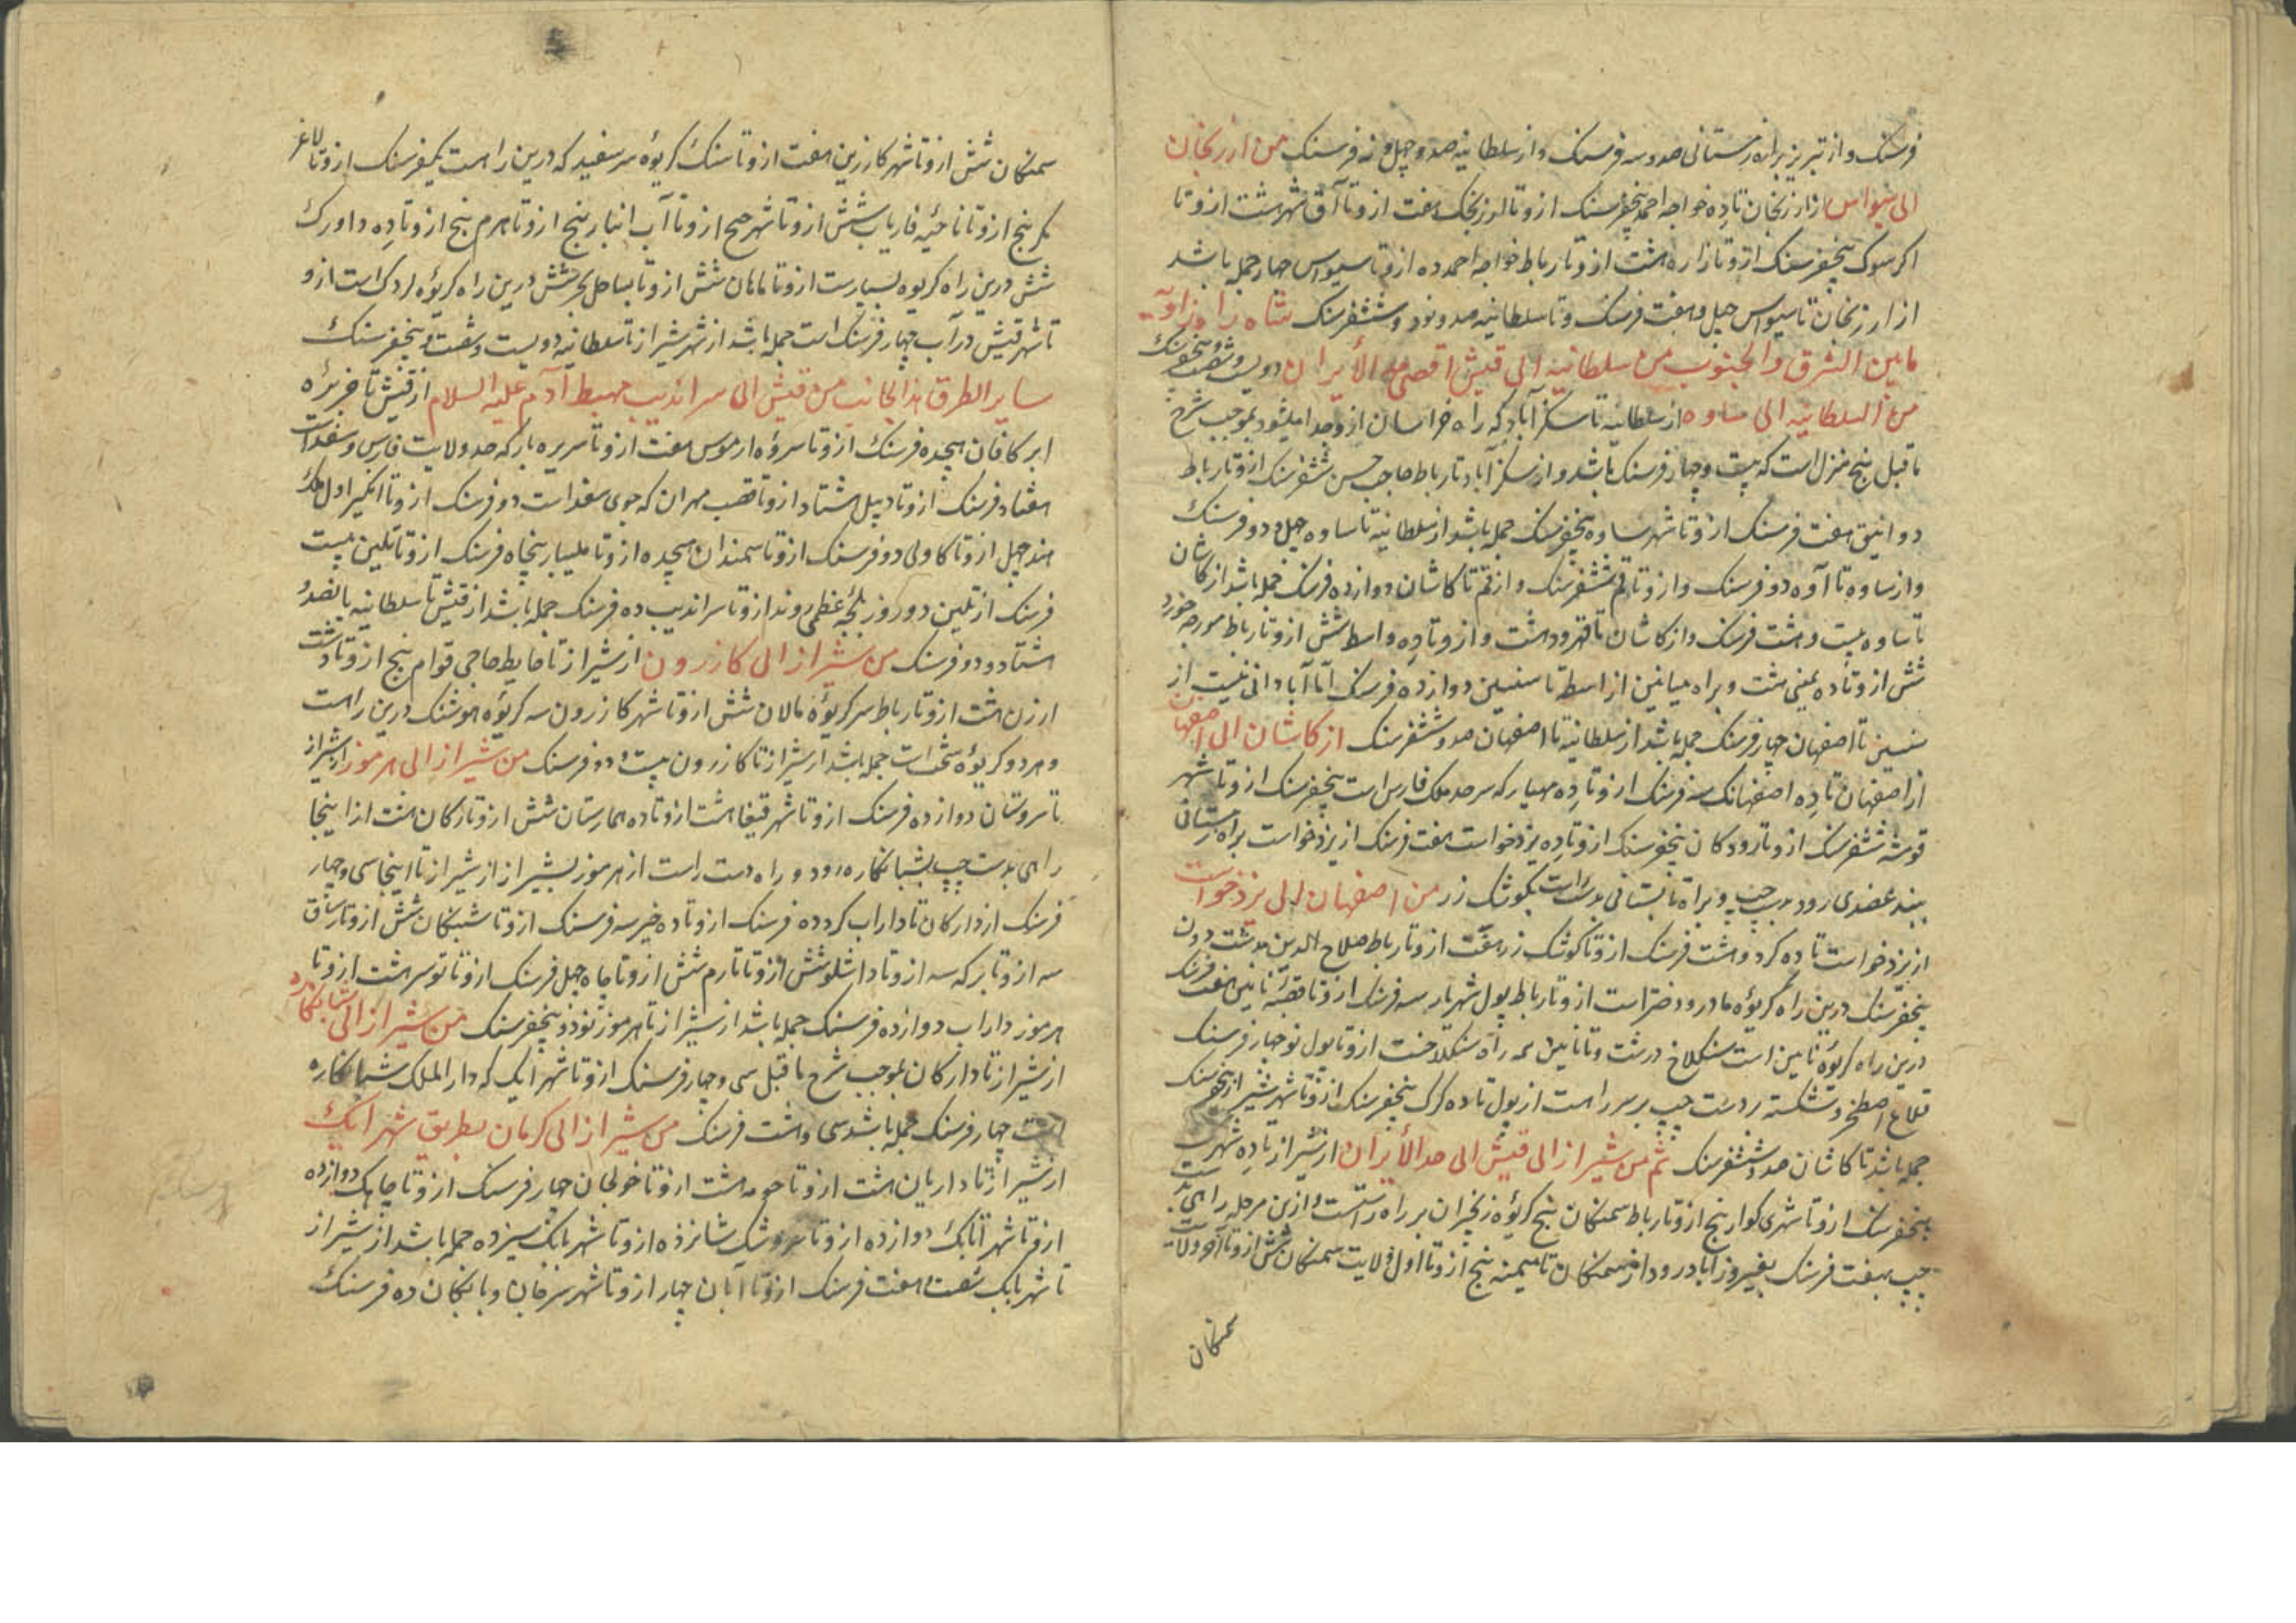 فرسنک و از تبریز براه زمستانی صد و سه فرسنک و از سلطانیه صد و چهل و نه فرسنک من ارزنجان
الی سیواس از ارزنجان تا ده خواجه احمد پنجفرسنک ازو تا ارزنجک هفت ازو تا آق شهر هشت ازو تا
اکرسوک پنجفرسنک ازو تا زاره هشت ازو تا رباط خواجه احمد ده ازو تا سیواس چهار جمله باشد
از ارزنجان تا سیواس چهل و هفت فرسنک و تا سلطانیه صد و نود و ششفرسنک شاه راه زاویه
ما بین الشرق و الجنوب من سلطانیه الی قیش اقصی الأیران دویست و شصت و پنجفرسنک
من السلطانیه الی ساوه از سلطانیه تا سکزآباد که راه خراسان ازو جدا میشود بموجب شرح
ما قبل پنج منزل است که بیست و چهار فرسنک باشد و از سکزآباد تا رباط حاجب حسن ششفرسنک ازو تا رباط
دوانیق هفت فرسنک ازو تا شهر ساوه پنجفرسنک جمله باشد از سلطانیه تا ساوه چهل و دو فرسنک
و از ساوه تا آوه دو فرسنک و ازو تا قم ششفرسنک و از قم تا کاشان دوازده فرسنک جمله باشد از کاشان
تا ساوه بیست و هشت فرسنک و از کاشان تا قهرود هشت و ازو تا ده واسط شش ازو تا رباط مورچه خورد
شش ازو تا ده هشت و براه میانین از اسط تا سنسین دوازده فرسنک اما آبادانی نیست از
سنسین تا اصفهان چهار فرسنک جمله باشد از سلطانیه تا اصفهان صد و ششفرسنک از کاشان الی اصفهان
از اصفهان تا ده اصفهانک سه فرسنک ازو تا ده مهیار که سرحد ملک فارس است پنجفرسنک ازو تا شهر
قوشه ششفرسنک ازو تا رودکان پنجفرسنک ازو تا ده یزدخواست هفت فرسنک از یزدخواست براه زمستانی
ببند عضدی رود بدست چپ و براه تابستانی بدست راست بکوشک زر من اصفهان الی یزدخواست
از یزدخواست تا ده کرد و هشت فرسنک ازو تا کوشک زر هفت ازو تا رباط صلاح الدین بدشت دون
پنجفرسنک درین راه کریوه مادر و دختر است ازو تا رباط پول شهریار سه فرسنک ازو تا قصبه مایین هفت فرسنک
درین راه کریوه مایین است سنکلاخ درشت و تا مایین همه راه سنکلاخست ازو تا پول نو چهار فرسنک
قلاع اصطخر و شکسته بر دست چپ بر سر راهست از پول تا ده کرک پنجفرسنک ازو تا شهر شیراز پنجفرسنک
جمله باشد تا کاشان صد و ششفرسنک ثم من شیراز الی قیش الی حد الأیران از شیراز تا ده شهرک
پنجفرسنک ازو تا شهر کوار پنج ازو تا رباط سمنکان پنج کریوه زنجیران بر راه راستست و ازین مرحله راهی بدست
چپ بهفت فرسنک بفیروزآباد رود از سمنکان تا میمنه پنج ازو تا اول ولایت سمنکان شش ازو تا آخر ولایت
سمنکان
سمنکان شش ازو تا شهر کارزین هفت ازو تا سنک کریوه سرسفید که درین راهست یکفرسنک ازو تا لاغر
پنج ازو تا ناحیه فاریاب شش ازو تا شهر صح ازو تا آب انبار پنج ازو تا هرم پنج ازو تا ده داورک
شش درین راه کریوه بسیارست ازو تا ماهان شش ازو تا بساحل بحر شش درین راه کریوه لردک است ازو
تا شهر قیش در آب چهار فرسنک است جمله باشد از شهر شیراز تا سلطانیه دویست و شصت و پنجفرسنک
سایر الطرق هذا الجانب من قیش الی سراندیب مهبط آدم علیه السلام از قیش تا جزیره
ابرکافان هیجده فرسنک ازو تا سروه ارموس هفت ازو تا سریره بار که حد ولایت فارس و سغد است
هفتاد فرسنک ازو تا دیبل هشتاد ازو تا قصب مهران که جوی سغد است دو فرسنک ازو تا انکیر اول ملک
هند چهل ازو تا کاولی دو فرسنک ازو تا سمندان هیجده ازو تا ملیبار پنجاه فرسنک ازو تا تلبین بیست
فرسنک از تلبین دو روز بلجه عظمی روند ازو تا سراندیب ده فرسنک جمله باشد از قیش تا سلطانیه پانصد و
هشتاد و دو فرسنک من شیراز الی کازرون از شیراز تا حایط حاجی قوام پنج ازو تا دشت
ارزن هشت ازو تا رباط سر کریوه مالان شش ازو تا شهر کازرون سه کریوه هوشنک درین راهست
و هر دو کریوه سختست جمله باشد از شیراز تا کازرون بیست و دو فرسنک من شیراز الی هرموز از شیراز
تا سروستان دوازده فرسنک ازو تا شهر قیفا هشت ازو تا ده بمارستان شش ازو تا رکان هشت از اینجا
راهی بدست چپ بشبانکاره رود و راه دست راست از هرموز بشیراز از شیراز تا اینجا سی و چهار
فرسنک از دارکان تا داراب کرد ده فرسنک ازو تا ده خیر سه فرسنک ازو تا شبنکان شش ازو تا رستاق
سه ازو تا برکه سه ازو تا داشلو شش ازو تا تارم شش ازو تا چاه چهل فرسنک ازو تا توسر هشت ازو تا
هرموز داراب دوازده فرسنک جمله باشد از شیراز تا هرموز نود و پنجفرسنک من شیراز الی شبانکاره
از شیراز تا دارکان بموجب شرح ما قبل سی و چهار فرسنک ازو تا شهر ایک که دار الملک شبانکاره
است چهار فرسنک جمله باشد سی و هشت فرسنک من شیراز الی کرمان بطریق شهر ایک
از شیراز تا داریان هشت ازو تا حومه هشت ازو تا خولجان چهار فرسنک ازو تا چاهک دوازده
ازو تا شهر اتابک دوازده ازو تا سروشک شانزده ازو تا شهر بابک سیزده جمله باشد از شیراز
تا شهر بابک شصت و هفت فرسنک ازو تا آبان چهار ازو تا شهر سرجان و بانجکان ده فرسنک